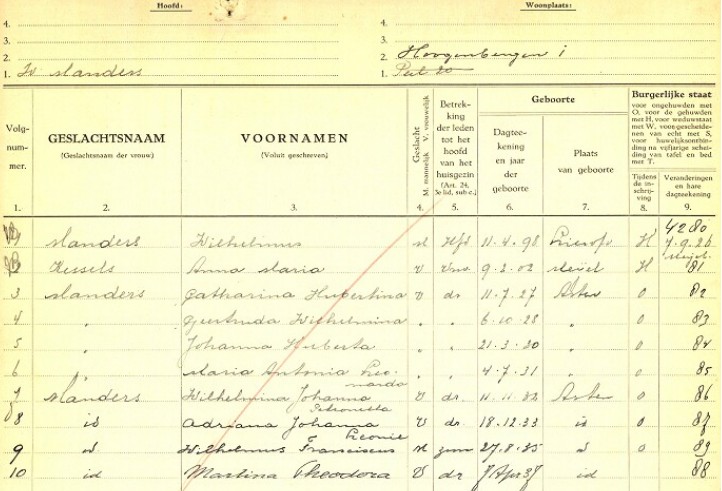 Hoofd:
Woonplaats:
4.
4.
3.
3.
2.
2. Hoogenbergen 1
1. W Manders
1. Peel 20
Volg-
num-
mer.
GESLACHTSNAAM
(Geslachtsnaam der vrouw)
VOORNAMEN
(Voluit geschreven)
Geslacht
M. mannelijk V. vrouwelijk
Betrek-
king
der leden
tot het
hoofd
van het
huisgezin
(Art. 24,
3e lid, sub c.)
Geboorte
Dagtee-
kening
en jaar
der
geboorte
Plaats
van geboorte
Burgerlijke staat
voor ongehuwden met
O, voor de gehuwden
met H, voor weduwstaat
met W, voor gescheide-
nen van echt met S,
voor huwelijksontbin-
ding na vijfjarige schei-
ding van tafel en bed
met T.
Tijdens
de in-
schrij-
ving
Veranderingen
en hare
dagteekening
1. 2. 3. 4. 5. 6. 7. 8. 9.
4280
Manders Wilhelmus M Hfd 11.4.98 H 7.9.26
Meijel
Kessels Anna Maria V Vrw 9.2.02 Meijel H 81
3 Manders Catharina Hubertina V dr 11.7.27 Asten O 82
4 " Geertruda Wilhelmina " " 6.10.28 " O 83
5 " Johanna Huberta " " 21.3.30 " O 84
6 " Maria Antonia Leo- " " 4.7.31 " O 85
narda
7 Manders Wilhelmina Johanna V dr. 11.11.32 Asten O 86
Petronella
8 id Adriana Johanna V dr. 18.12.33 id O 87
Leonie
9 id Wilhelmus Franciscus M zoon 27.8.35 id O 89
10 id Martina Theodora V dr 7 Apr 37 id 88